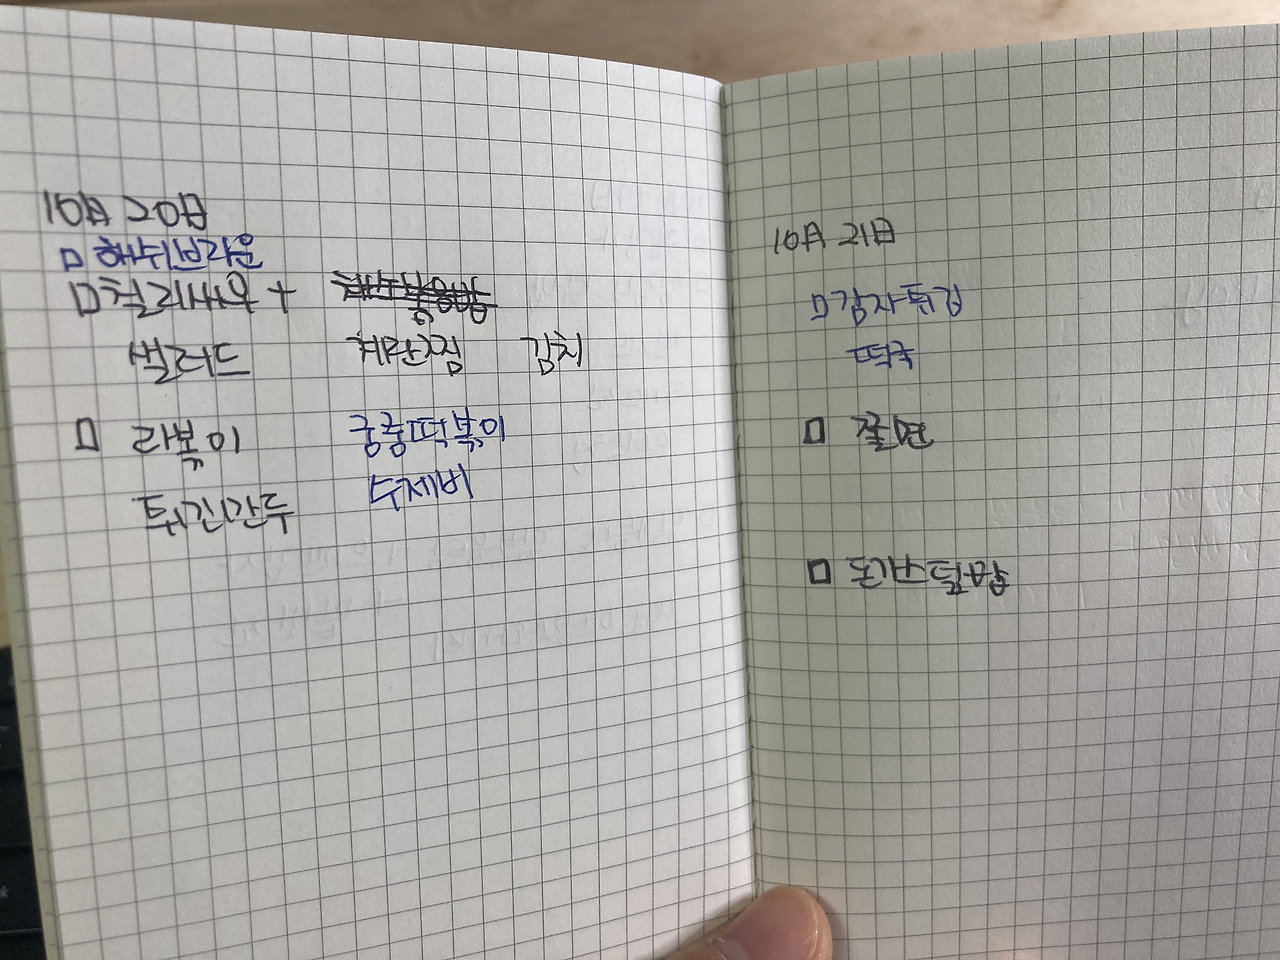 10월 20일
□ 해쉬브라운
□ 칠리새우 +
샐러드 계란찜 김치
□ 라볶이 궁중떡볶이
튀긴만두 수제비
10월 21일
□ 감자튀김
떡국
□ 쫄면
□